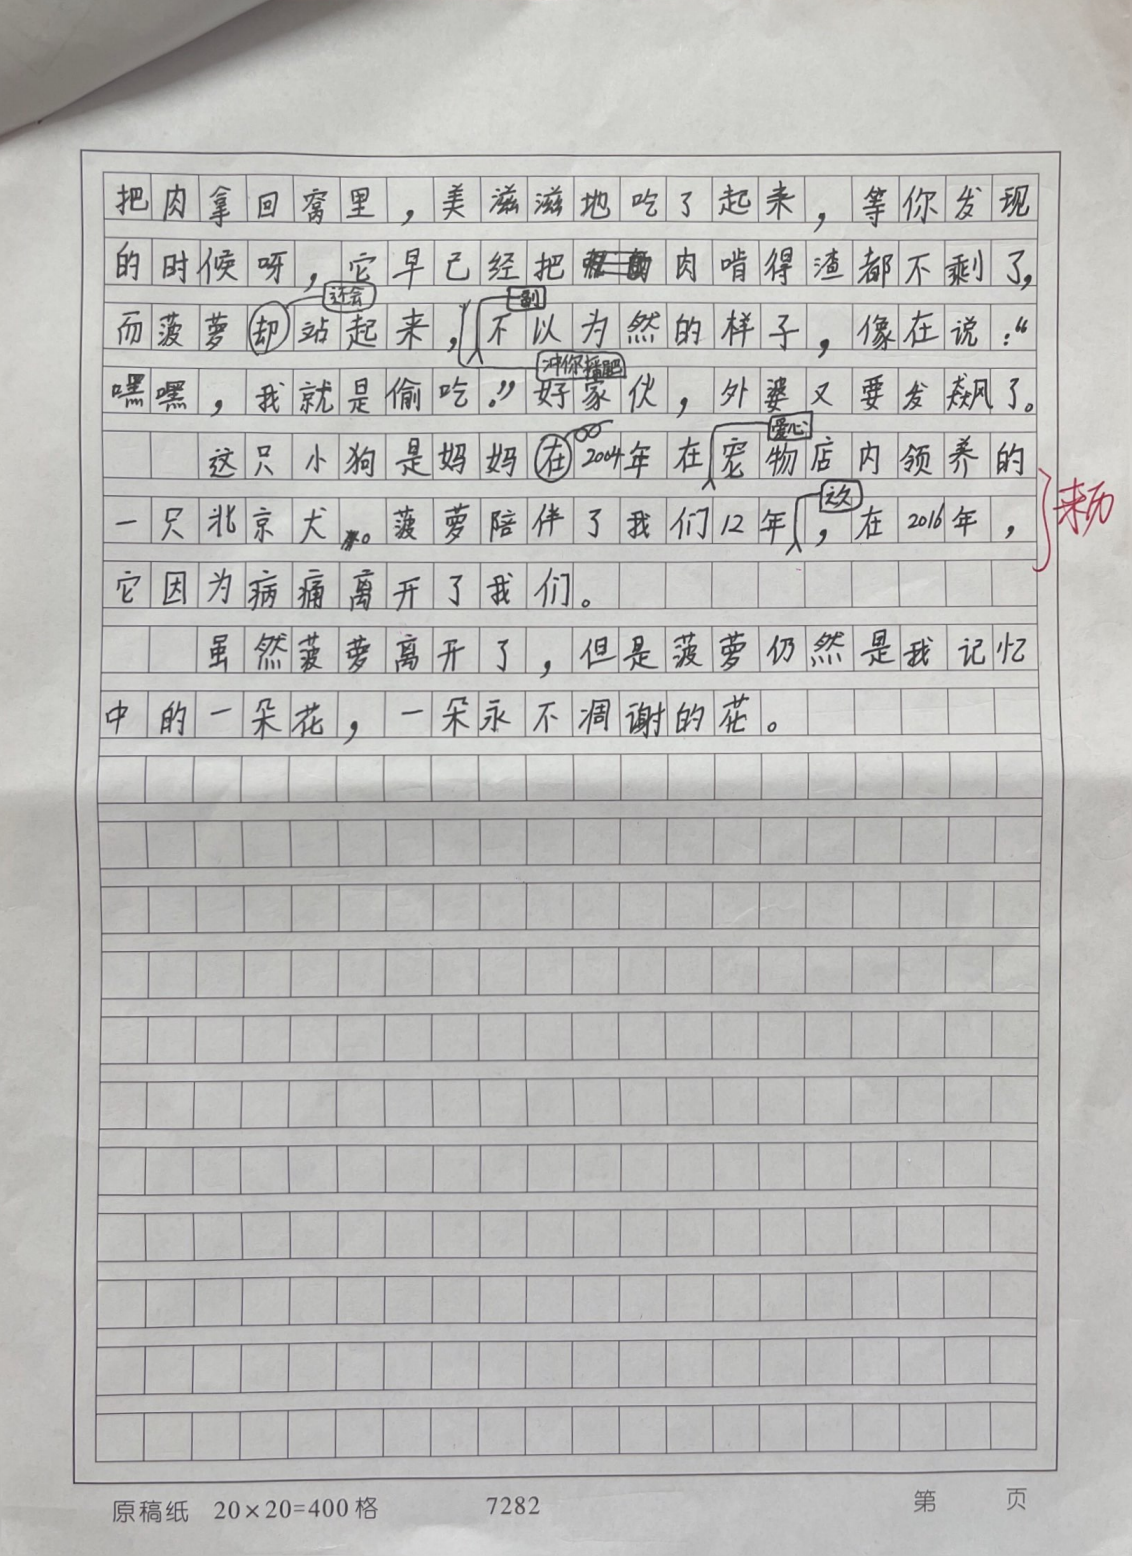 把肉拿回窝里，美滋滋地吃了起来，等你发现
的时候呀，它早已经把肉啃得渣都不剩了，
还会 一副
而菠萝却站起来，不以为然的样子，像在说：“
冲你摇摇
嘿嘿，我就是偷吃。”好家伙，外婆又要发飙了。
爱心
这只小狗是妈妈在2004年在宠物店内领养的
之久
一只北京犬。菠萝陪伴了我们12年，在2016年，
来历
它因为病痛离开了我们。
虽然菠萝离开了，但是菠萝仍然是我记忆
中的一朵花，一朵永不凋谢的花。
原稿纸 20×20=400格 7282 第 页